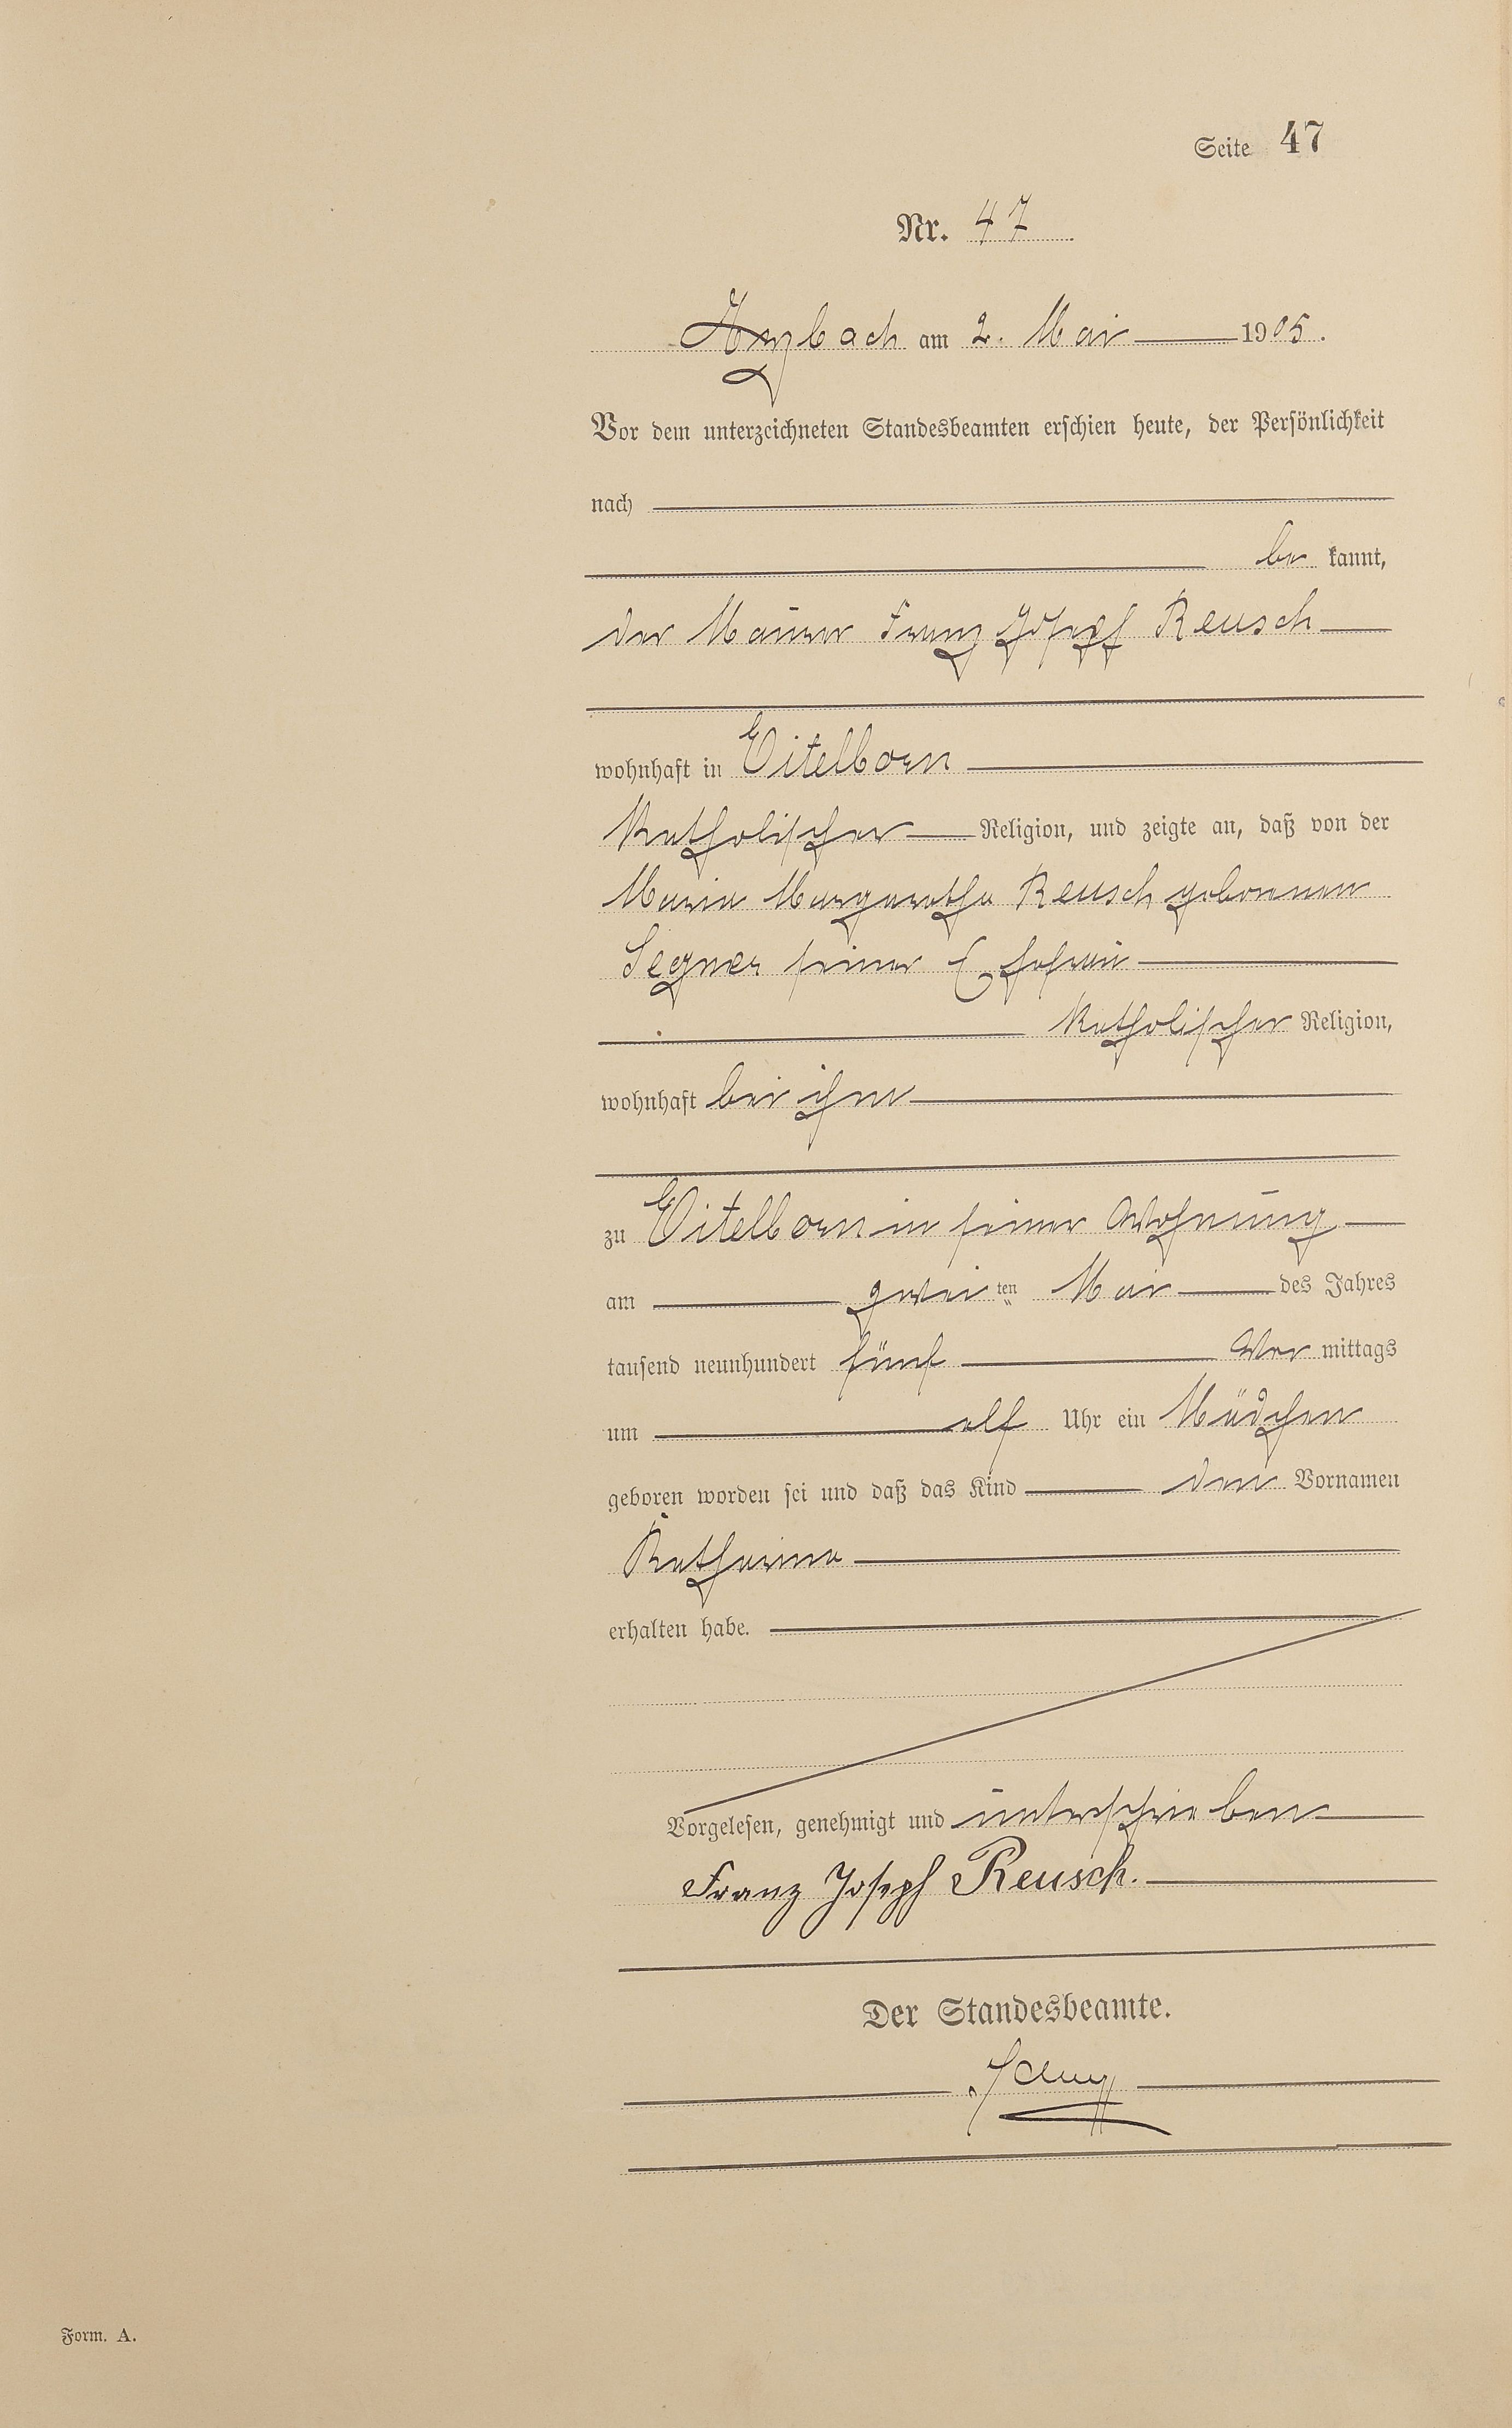 Seite 47
Nr. 47
Arzbach am 2. Mai 1905.
Vor dem unterzeichneten Standesbeamten erschien heute, der Persönlichkeit
nach
be kannt,
der Maurer Franz Josepf Reusch
wohnhaft in Eitelborn
katholischer Religion, und zeigte an, daß von der
Maria Margaretha Reusch geborenen
Segner seiner Ehefrau
katholischer Religion,
wohnhaft bei ihm
zu Eitelborn in seiner Wohnung
am zwei ten Mai des Jahres
tausend neunhundert fünf Vor mittags
um elf Uhr ein Mädchen
geboren worden sei und daß das Kind den Vornamen
Katharina
erhalten habe.
Vorgelesen, genehmigt und unterschrieben
Franz Joseph Reusch.
Der Standesbeamte.
Form. A.